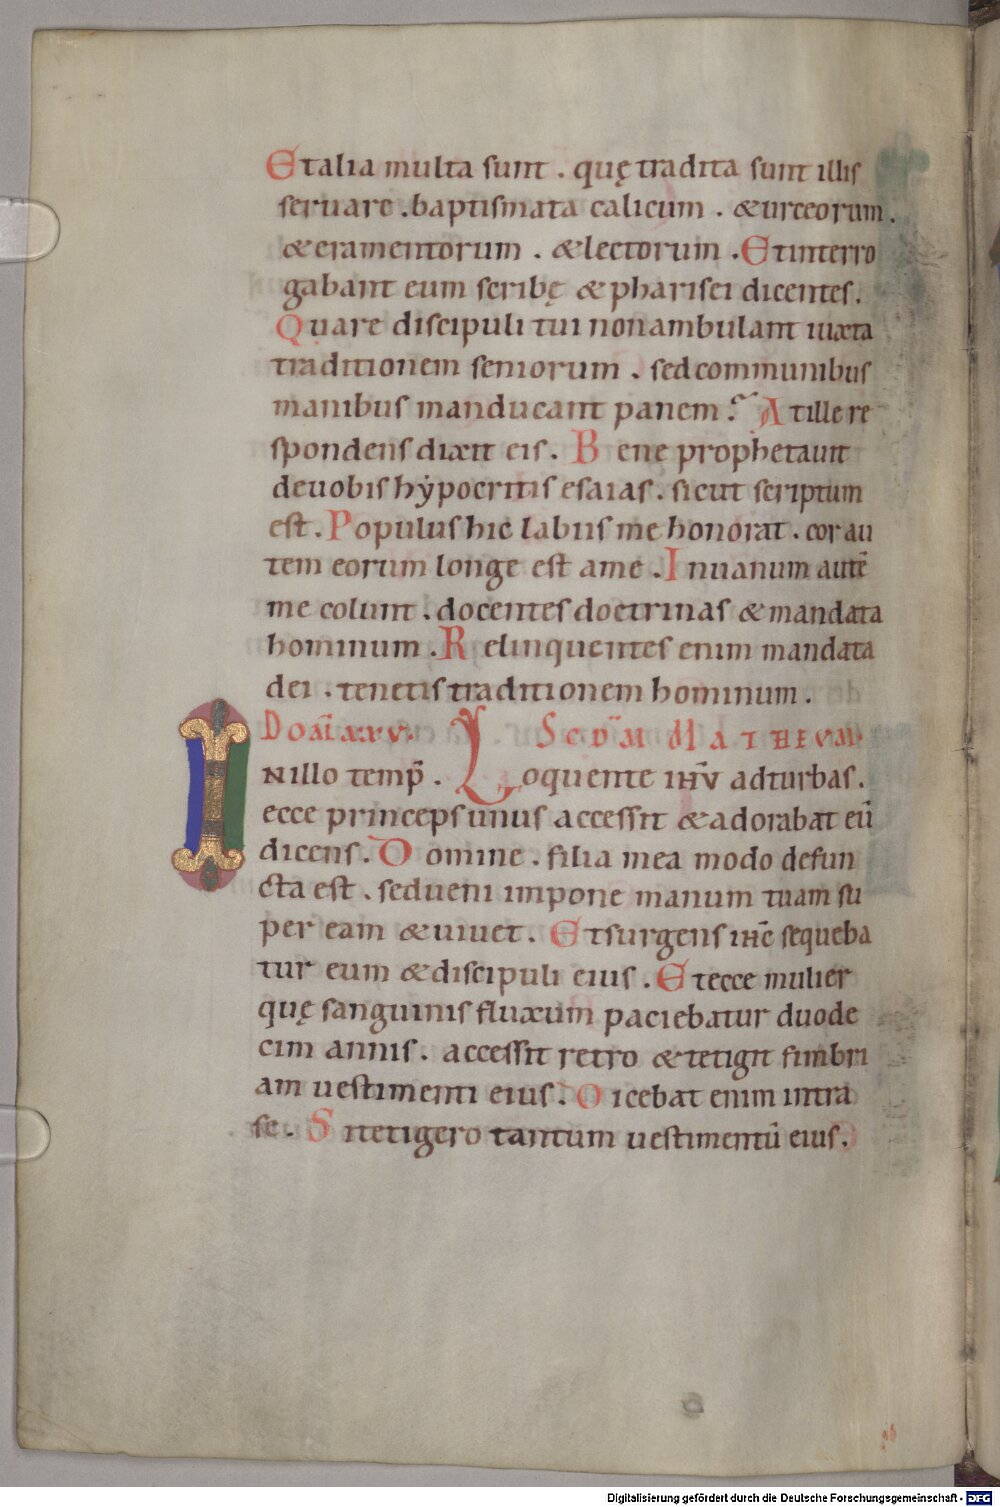 Et alia multa sunt . quę tradita sunt illis
seruare . baptismata calicum . & urceorum .
& eramentorum . & lectorum . Et interro
gabant eum scribę & pharisei dicentes .
Quare discipuli tui non ambulant iuxta
traditionem seniorum . sed communibus
manibus manducant panem ? At ille re
spondens dixit eis . Bene prophetauit
de uobis hẏpocritis esaias . sicut scriptum
est . Populus hic labiis me honorat . cor au
tem eorum longe est a me . In uanum autē
me colunt . docentes doctrinas & mandata
hominum . Relinquentes enim mandata
dei . tenetis traditionem hominum .
DOM̄ XXV. SCD̄M MATHEUM
IN illo temp̄ . Loquente ihū ad turbas .
ecce princeps unus accessit & adorabat eū
dicens . Domine . filia mea modo defun
cta est . sed ueni impone manum tuam su
per eam & uiuet . Et surgens ihc̄ sequeba
tur eum & discipuli eius . Et ecce mulier
quę sanguinis fluxum paciebatur duode
cim annis . accessit retro & tetigit fimbri
am uestimenti eius . Dicebat enim intra
se . Si tetigero tantum uestimentū eius .
Digitalisierung gefördert durch die Deutsche Forschungsgemeinschaft - DFG